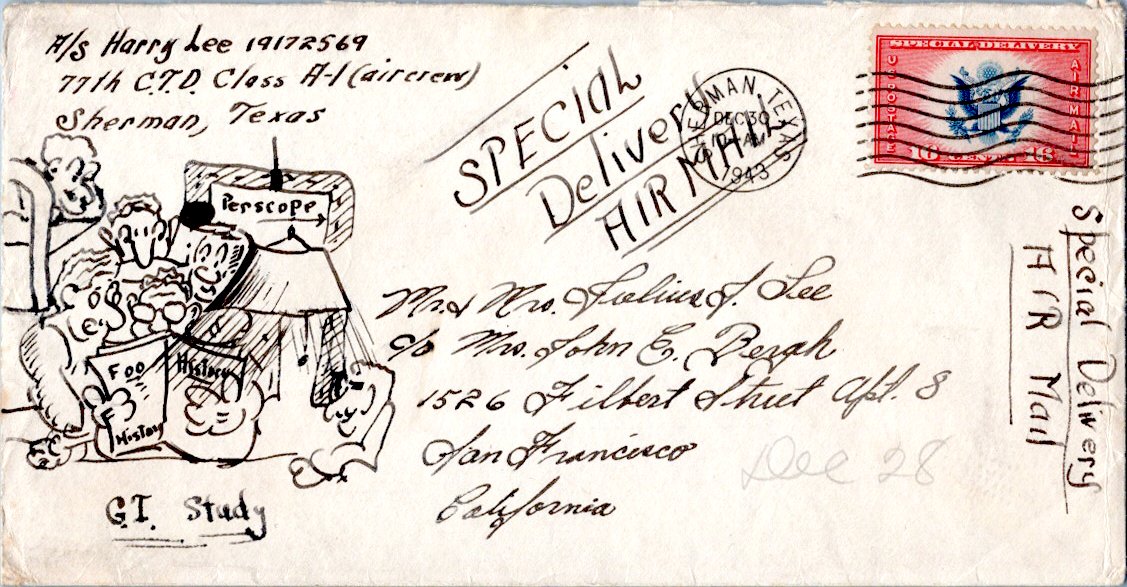 A/S Harry Lee 19172569
77th C.T.D. Class A-1 (aircrew)
Sherman, Texas
SPECIAL
Delivery
AIR MAIL
SHERMAN, TEXAS
DEC 30
AM
1943
SPECIAL DELIVERY
U.S. POSTAGE
AIR MAIL
16 CENTS 16
Perscope
Foo
History
History
G.I. Study
Mr. & Mrs. Julius J. Lee
c/o Mrs. John E. Bergh
1526 Filbert Street Apt. 8
San Francisco
California
Dec 28
Special Delivery
AIR Mail